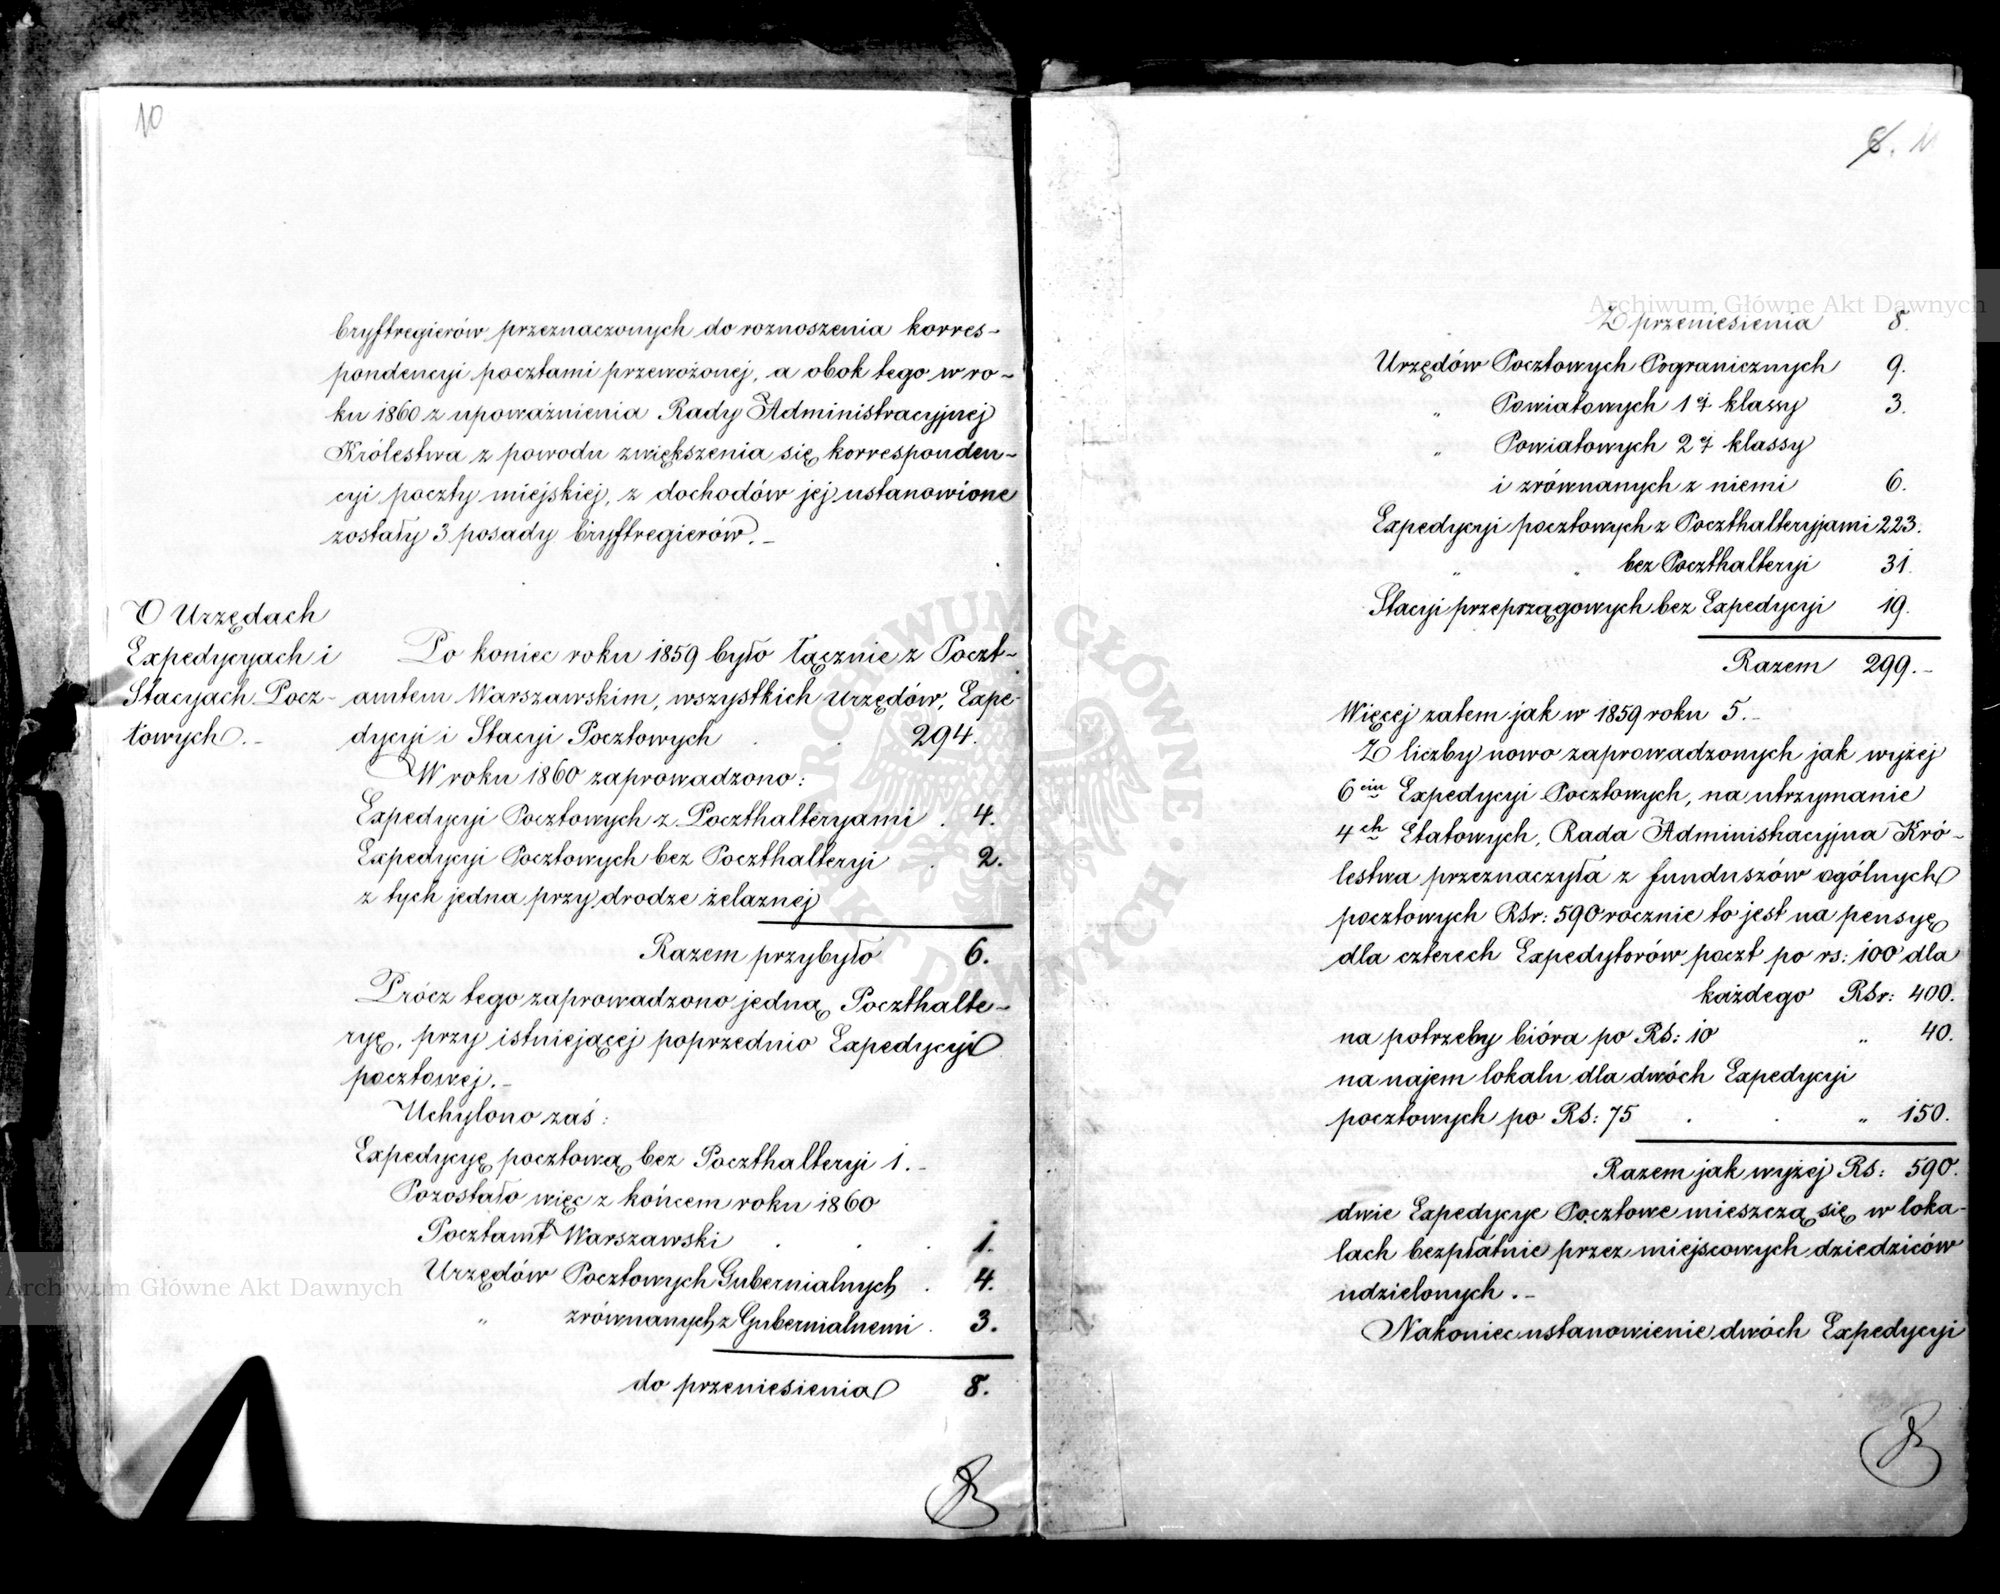 10
bryftregierów przeznaczonych do roznoszenia korres-
pondencyi pocztami przewożonej, a obok tego w ro-
ku 1860 z upoważnienia Rady Administracyjnej
Królestwa z powodu zwiększenia się korresponden-
cyi poczty miejskiej, z dochodów jej ustanowione
zostały 3 posady bryftregierów.-
O Urzędach
Expedycyach i
Stacyach Pocz-
towych.-
Po koniec roku 1859 było łącznie z Poczt-
amtem Warszawskim, wszystkich Urzędów, Expe-
dycyi i Stacyi Pocztowych . . 294.
W roku 1860 zaprowadzono:
Expedycyi Pocztowych z Poczthalteryami . 4.
Expedycyi Pocztowych bez Poczthalteryi . 2.
z tych jedna przy drodze żelaznej
Razem przybyło 6.
Prócz tego zaprowadzono jedną Poczthalte-
ryę, przy istniejącej poprzednio Expedycyi
pocztowej.-
Uchylono zaś:
Expedycyę pocztową bez Poczthalteryi 1.-
Pozostało więc z końcem roku 1860
Pocztamt Warszawski . . . 1.
Urzędów Pocztowych Gubernialnych . 4.
" zrównanych z Gubernialnemi . 3.
do przeniesienia 8.
6. 11
Z przeniesienia 8.
Urzędów Pocztowych Pogranicznych 9.
" Powiatowych 1ej klassy 3.
" Powiatowych 2ej klassy
i zrównanych z niemi 6.
Expedycyi pocztowych z Poczthalteryjami 223.
" " bez Poczthalteryi 31.
Stacyi przeprzągowych bez Expedycyi 19.
Razem 299.-
Więcej zatem jak w 1859 roku 5.-
Z liczby nowo zaprowadzonych jak wyżej
6ciu Expedycyi Pocztowych, na utrzymanie
4ch Etatowych, Rada Administracyjna Kró-
lestwa przeznaczyła z funduszów ogólnych
pocztowych RSr: 590 rocznie to jest na pensyę
dla czterech Expedytorów poczt po rs: 100 dla
każdego RSr: 400.
na potrzeby bióra po RS: 10 " 40.
na najem lokalu dla dwóch Expedycyi
pocztowych po RS: 75 . . " 150.
Razem jak wyżej RS: 590.
dwie Expedycye Pocztowe mieszczą się w loka-
lach bezpłatnie przez miejscowych dziedziców
udzielonych.-
Nakoniec ustanowienie dwóch Expedycyi
Archiwum Główne Akt Dawnych
Archiwum Główne Akt Dawnych
ARCHIWUM GŁÓWNE AKT DAWNYCH